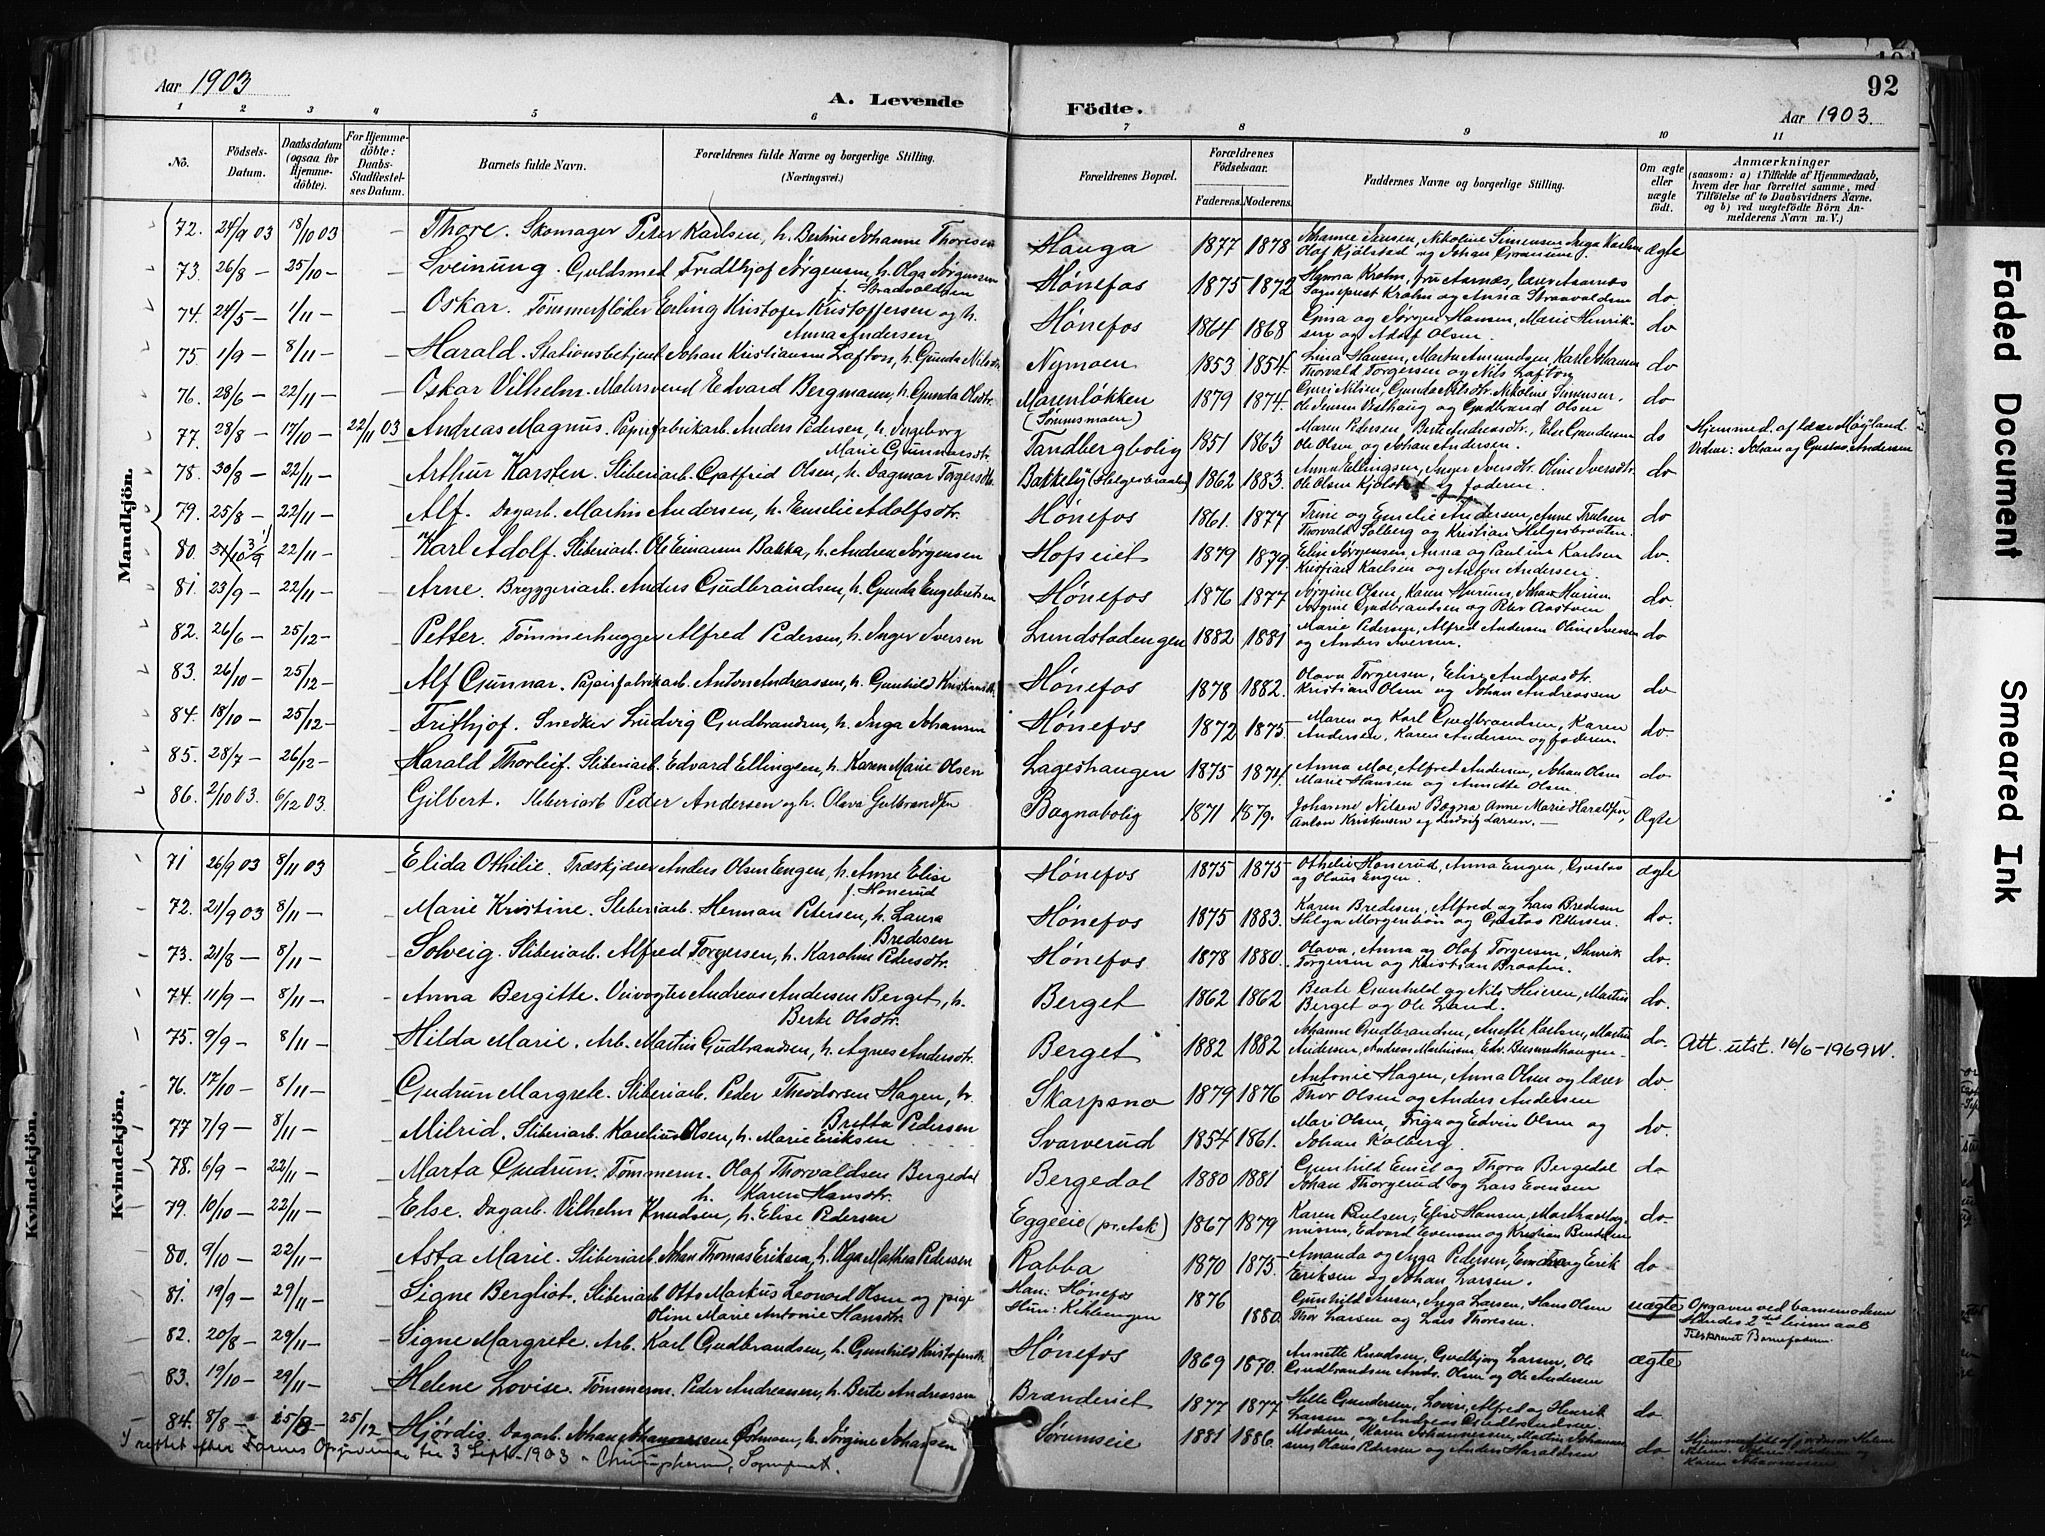 92
Aar 1903
A. Levende Födte.
Aar 1903.
1 2 3 4 5 6 7 8 9 10 11
No. Födsels-Datum. Daabsdatum (ogsaa for Hjemmedöbte). For Hjemmedöbte: Daabs-Stadfestelses Datum. Barnets fulde Navn. Forældrenes fulde Navne og borgerlige Stilling. (Næringsvei.) Forældrenes Bopæl. Forældrenes Födselsaar. Faderens. Moderens. Faddernes Navne og borgerlige Stilling. Om ægte eller uægte födt. Anmærkninger (saasom: a) i Tilfælde af Hjemmedaab, hvem der har forrettet samme, med Tilföielse af to Daabsvidners Navne. og b) ved uægtefödte Börn Anmelderens Navn m. V.)
Mandkjön.
72. 24/9 03 18/10 03 Thore. Skomager Peter Karlsen, h. Bertine Johanne Thoresen Hauga 1877 1878 Johanne Jensen, Nikoline Simensen, Inga Karlsen Olaf Kjølstad og Johan ægte
73. 26/8 25/10 Sveinung. Guldsmed Fridthjof Jørgensen, h. Olga Jørgensen f. Straavaldsen Hønefos 1875 1872 Hanna Krohn, fru Aarnæs, lærer Aarnæs Sogneprest Krohn og Anna Straavaldsen do.
74. 24/5 1/11 Oskar. Tømmerfløder Erling Kristofer Kristoffersen og h. Anna Andersen Hønefos 1864 1868 Gina og Jørgen Hansen, Marie Henriksen og Adolf Olsen. do
75. 1/9 8/11 Harald. Stationsbetjent Johan Kristiansen Lafton, h. Gunda Nilsdtr. Nymoen 1853 1854. Lina Hansen, Marta Amundsen, Karl Johansen Thorvald Torgersen og Nils Lafton do
76. 28/6 22/11 Oskar Vilhelm. Malersvend Edvard Bergmann, h. Gunda Olsdtr. Marenløkken (Sømmsmoen) 1879 1874. Guri Nilsen, Gunda Nilsdtr. Nikoline Simensen, Ole Jensen Vesthaug og Gudbrand Olsen do
77. 28/8 17/10 22/11 03 Andreas Magnus. Papirfabrikarb. Anders Pedersen, h. Ingeborg Marie Gunnarsdtr. Tandbergbolig 1851 1863 Maren Pedersen, Berte Andreasdtr., Eler Gundersen Ole Olsen og Johan Andersen. do Hjemmed. af lærer Møgland Vidner: Johan og Gustav Andersen
78. 30/8 22/11 Arthur Karsten. Sliberiarb. Gotfred Olsen, h. Dagmar Torgersdtr. Bakkely (Helgesbraaten) 1862 1883. Anna Ellingsen, Inger Iversdtr. Oline Iversdtr. Ole Olsen Kjølstad og faderen. do
79. 25/8 22/11 Alf. Dagarb. Martin Andersen, h. Emelie Adolfsdtr. Hønefos 1861. 1877 Trine og Emelie Andersen, Anne Trulsen Thorvald Solberg og Kristian Helgesbraaten. do
80. 31/10 3/9 22/11 Karl Adolf. Sliberiarb. Ole Einarsen Bakka, h. Andrea Jørgensen Hofseiet 1879 1879. Elise Jørgensen, Anna og Pauline Karlsen Kristian Karlsen og Anton Andersen. do.
81. 23/9 22/11 Arne. Bryggeriarb. Anders Gudbrandsen, h. Gunda Engebretsen Hønefos 1876 1877 Jørgine Olsen, Karen Hurum, Johan Hurum Jørgine Gudbrandsen og Peter Aastven do.
82. 26/6 25/12 Petter. Tømmerhugger Alfred Pedersen, h. Inger Iversen Lundstadengen 1882 1881 Marie Pedersen, Alfred Andersen Oline Iversen og Anders Iversen. do
83. 26/10 25/12 Alf Gunnar. Papirfabrikarb. Anton Andreassen, h. Gunhild Kristiansdtr. Hønefos 1878 1882. Olava Torgersen, Elise Andreasdtr. Kristian Olsen og Johan Andreassen do
84. 18/10 25/12 Frithjof. Snedker Ludvig Gudbrandsen, h. Inga Johansen Hønefos 1872 1875. Maren og Karl Gudbrandsen, Karen Andersen, Karen Andersen og faderen. do.
85. 28/7 26/12 Harald Thorleif. Sliberiarb. Edvard Ellingsen, h. Karen Marie Olsen Lageshaugen 1875 1874. Anna Moe, Alfred Andersen, Johan Olsen Marie Hansen og Annette Olsen. do
86. 2/10 03. 6/12 03. Gilbert. Sliberiarb Peder Andersen og h. Olava Gulbrandsen Bagnabolig 1871 1879. Johanne Nilsen Bagna Anne Marie Haraldsen, Anton Kristensen og Ludvig Larsen. Ægte
Kvindekjön.
Kvindekjön.
71 26/9 03 8/11 03 Elida Othilie. Træskjærer Anders Olsen Engen, h. Anne Elise f. Honerud Hønefos 1875 1875 Othelie Honerud, Anna Engen, Gustav og Olaus Engen. ægte
72. 21/9 03 8/11 Marie Kristine. Sliberiarb. Herman Petersen, h. Laura Bredesen Hønefos 1875 1883. Karen Bredesen, Alfred og Lars Bredesen Helga Morgenbön og Gustav Pettersen. do.
73. 21/8 8/11 Solveig. Sliberiarb. Alfred Torgersen, h. Karoline Pedersdtr. Hønefos 1878 1880. Olava, Anna og Olaf Torgersen, Henrik Torgersen og Kristian Braaten. do.
74. 11/9 8/11 Anna Bergitte. Veivogter Andreas Andersen Berget, h. Berte Olsdtr. Berget 1862 1862 Beate Gunhild og Nils Heieren, Martin Berget og Ole Land. do.
75. 9/9 8/11 Hilda Marie. Arb. Martin Gudbrandsen, h. Agnes Andersdtr. Berget 1882 1882 Johanne Gudbrandsen, Anette Karlsen, Martin Andersen, Andreas Martinsen, Edv. Busundhaugen do. Att. utst. 16/6-1969 W.
76. 17/10 8/11 Gudrun Margrete. Sliberiarb. Peder Theodorsen Hagen, h. Bretta Pedersen Skarpsno 1879 1876 Antonie Hagen, Anna Olsen og lærer Thor Olsen og Anders Andersen do.
77 7/9 8/11 Milrid. Sliberiarb. Karelius Olsen, h. Marie Eriksen Svarverud 1854 1861. Mari Olsen, Frigu og Edvin Olsen og Johan Kolberg do.
78. 6/9 22/11 Marta Gudrun. Tømmerm. Olaf Thorvaldsen Bergedal h. Karen Hansdtr. Bergedal 1880 1881 Gunhild Emil og Thora Bergedal Johan Thorgerud og Lars Evensen do
79. 10/10 22/11 Else. Dagarb. Vilhelm Knudsen, h. Elise Pedersen Eggeeie (pr. Ask) 1867 1879 Karen Paulsen, Elise Hansen, Martha Magnussen, Edvard Evensen og Kristian Bendiksen do.
80. 9/10 22/11 Asta Marie. Sliberiarb. Johan Thomas Eriksen, h. Olga Mathea Pedersen Rabba 1870 1875. Amanda og Inga Pedersen, Emelie og Erik Eriksen og Johan Larsen. do
81. 19/9 29/11 Signe Bergliot. Sliberiarb Otto Markus Leonard Olsen og pige Oline Marie Antonie Hansdtr. Han: Hønefos Hun: Ræhlengen 1876 1880. Gunhild Jensen, Inga Larsen, Hans Olsen Thor Larsen og Lars Thoresen. uægte Opgaven ved barnemoderen Hendes 2det leiermaal Tilskrevet Barnefaderen.
82. 20/8 29/11 Signe Margrete. Arb. Karl Gudbrandsen, h. Gunhild Kristofersdtr. Hønefos 1869 1870. Annette Knudsen, Gudbjørg Larsen, Ole Gudbrandsen Ands. Olsen og Ole Andersen ægte
83. 19/10 29/11 Helene Lovise. Tømmerm. Peder Andreassen, h. Berte Andreassen Branderiet 1877 1877 Helle Gundersen, Lovise, Alfred og Henrik Larsen og Andreas Gudbrandsen. do
84. 8/8 15/8 25/12 Hjørdis. Dagarb. Johan Johannessen Østmoen, h. Jørgine Johansen Sørumseie 1881 1886. Moderen, Karen Johannessen, Martin Johannessen, Hans Pedersen og Anders Haraldsen do. Hjemmedøbt af jordmor Helene Nilsen. Vidner: Moderen og Karen Johannessen
rettet efter Farens Opgivende 3 Sept. 1903 Sogneprest.
Faded Document
Smeared Ink